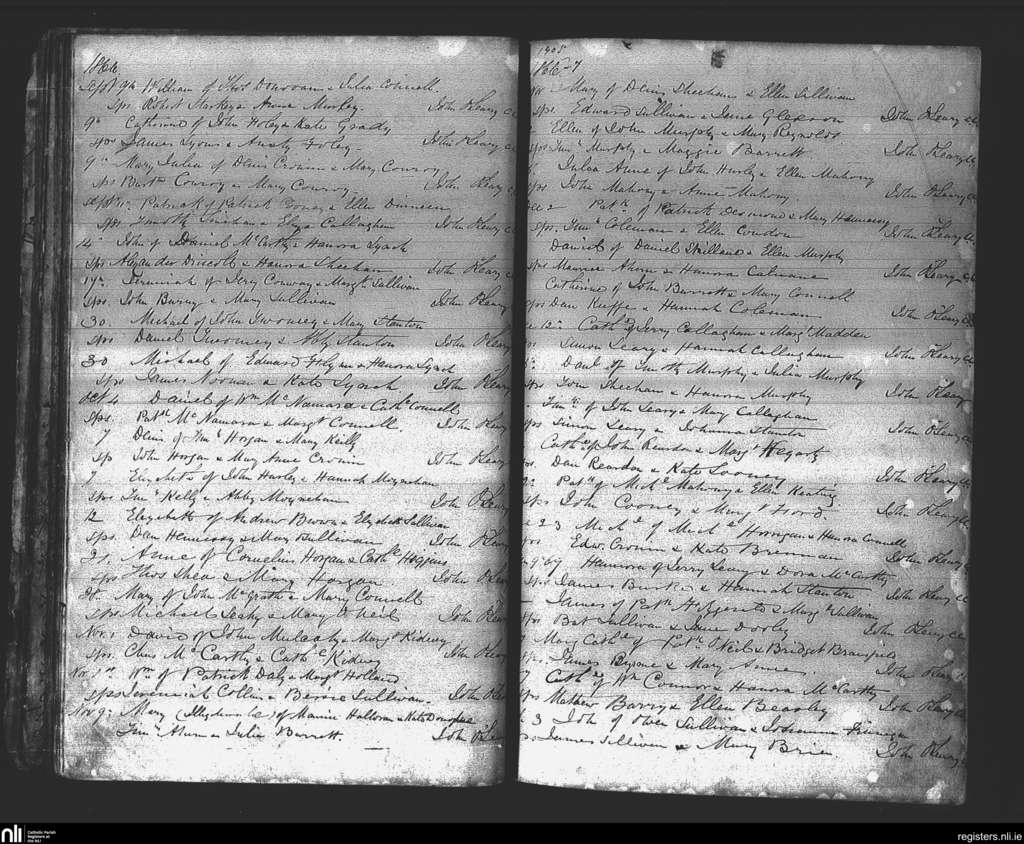 1866
Sept 9th William of Thos Donovan & Julia Connell.
Sps Robert Starkey & Anne Murley. John O'Leary CC
9th Catherine of John Foley & Kate Grady
sps James Lyons & Ansty Foley. John O'Leary C
9th Mary Julia of Denis Cronin & Mary Conroy
sps Barth Conroy & Mary Conroy. John O'Leary C
Sept 11th Patrick of Patrick & Ellen Dinneen
sps Timothy & Eliza Callaghan John O'Leary C
14 John of Daniel McCarthy & Hanora Lynch
sps Alexander Driscoll & Hanora Sheehan John O'Leary C
17th Jeremiah of Jerry Conway & Margt Sullivan
sps. John & Mary Sullivan John O'Leary
30. Michael of John Twomey & Mary Stanton
sps Daniel Twomey & Stanton John O'Leary
30 Michael of Edward & Hanora Lynch
sps James Noonan & Kate Lynch John O'Leary
Oct 4 Daniel of Wm McNamara & Cathe Connell
sps. Patk McNamara & Margt Connell. John O'Leary
7 Denis of Jms Horgan & Mary Kelly
sp John Horgan & Mary Anne Cronin John O'Leary
7 Elizabeth of John Hurley & Hannah Moynehan
sps Kelly & Abby Moynehan John O'Leary
12 Elizabeth of Andrew Brown & Elizabeth Sullivan
sps. Dan Hennessy & Mary Sullivan John O'Leary
21. Anne of Cornelius Horgan & Cathe
sps Thos Shea & Mary Horgan John O'Leary
Mary of John McGrath & Mary Connell
sps Michael Leahy & Mary O'Neil John O'Leary
Nov. 1 David of John Mulcahy & Margt Kidney
sps. Chas McCarthy & Cathe Kidney John O'Leary
Nov Wm of Patrick Daly & Margt Holland
sps Jeremiah Collins & Sullivan. John O'Leary
Nov 9th Mary (Illegitimate) of Maurice Halloran & Kate Donoghue
Ahern & Julia Barrett. John O'Leary
1905
1866-7
Mary of Denis Sheehan & Ellen Sullivan
sps. Edward Sullivan & Jane Gleeson John O'Leary CC
Ellen of John Murphy & Mary Reynolds
sps Murphy & Maggie Barrett John O'Leary CC
Julia Anne of John Hurley & Ellen Mahony
sps. John Mahony & Anne Mahony. John O'Leary CC
Dec 2 Patk of Patrick Desmond & Mary Hennessy
sps. Coleman & Ellen Condon John O'Leary CC
Daniel of Daniel & Ellen Murphy
sps Maurice Ahern & Hanora John O'Leary CC
Catherine of John Barrett & Mary Connell
sps Dan Keeffe & Hannah Coleman John O'Leary CC
12th Cath of Jerry Callaghan & Margt Madden
Simon Leary & Hannah Callaghan John O'Leary CC
Danl of Timoth Murphy & Julia Murphy
sps Sheehan & Hanora Murphy John O'Leary
of John Leary & Mary Callaghan
sps Simon Leary & Johanna Stanton John O'Leary CC
Cathe of John Reardon & Margt Hegarty
Dan Reardon & Kate Looney John O'Leary CC
Patk of Michl Mahony & Ellen Keating
sps John Cooney & Margt Ford. John O'Leary CC
23 Michl of Michl Horrigan & Hanora Connell
Edw. Cronin & Kate Brennan John O'Leary CC
67 Hannora of Jerry Leary & Dora McCarthy
sps James & Hannah Stanton John O'Leary CC
James of Patk & Margt Sullivan
sps Bat Sullivan & Jane Dooley John O'Leary CC
Mary Cathe of Patk O'Neil & Bridget
sps. James Byrne & Mary John O'Leary CC
Cathe of Wm Connors & Hanora McCarthy
sps Mathew Barry & Ellen Beasley John O'Leary CC
3 Joh of Sullivan & Johanna
James Sullivan & Mary Brien John O'Leary CC
nli
Catholic Parish
Registers at
the NLI
registers.nli.ie